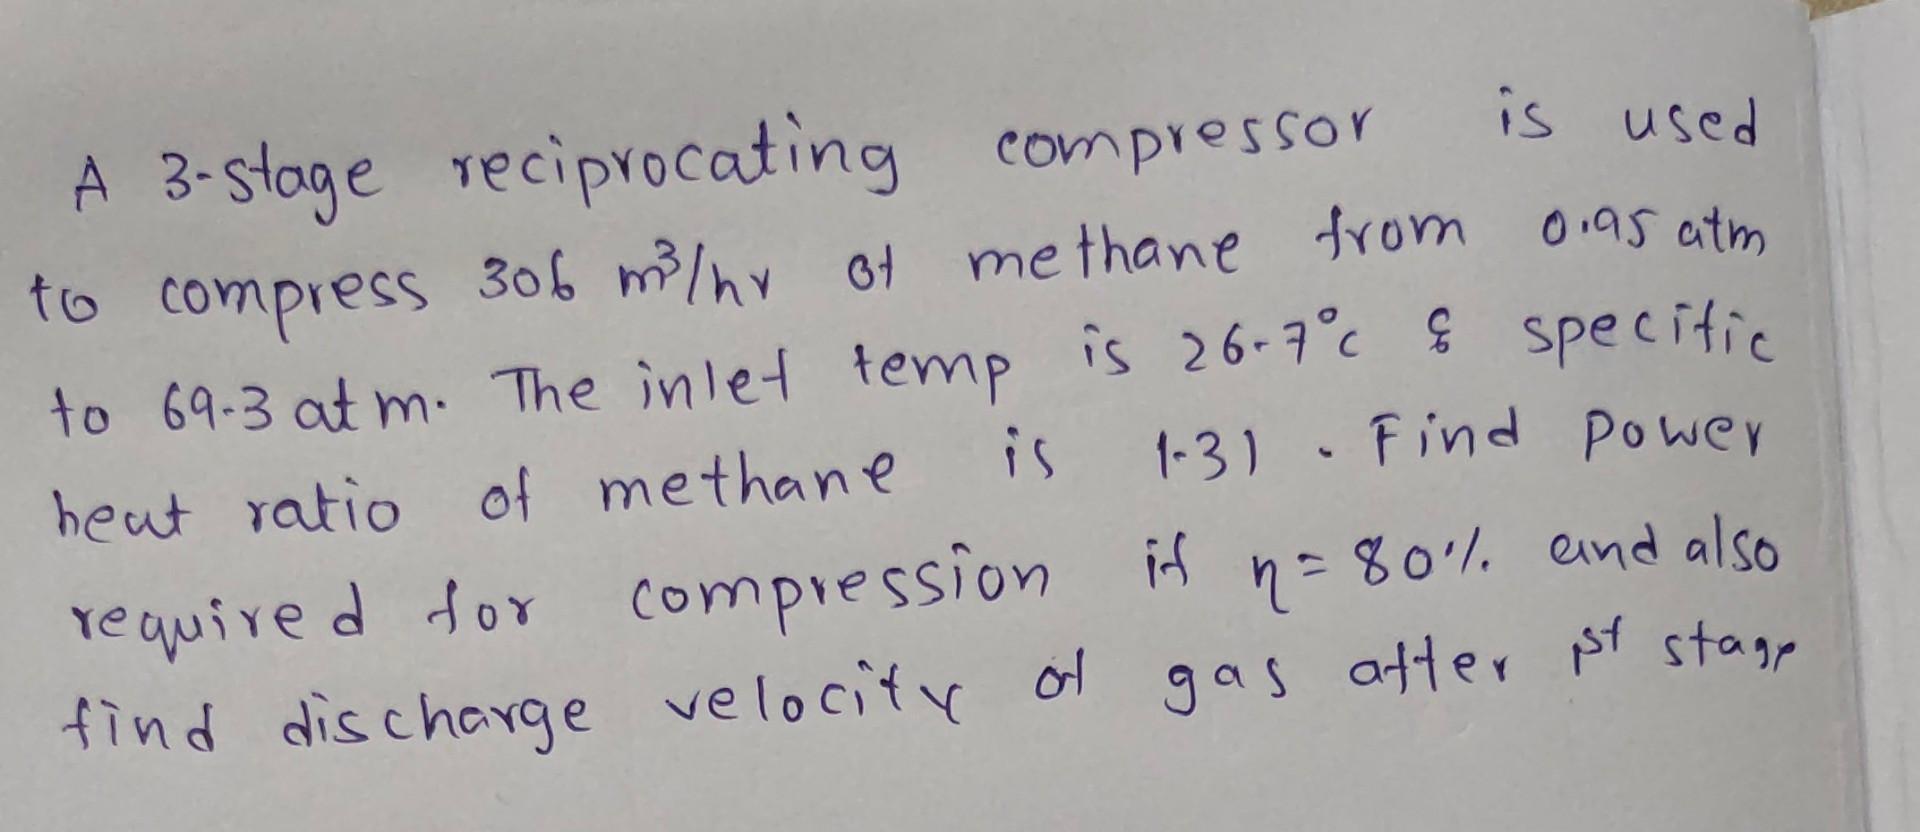 A 3-stage reciprocating compressor is used
to compress 306 m³/hr of methane from 0.95 atm
to 69.3 atm. The inlet temp is 26.7°c & specific
heat ratio of methane is 1.31. Find power
required for compression if η=80% and also
find discharge velocity of gas after 1st stage